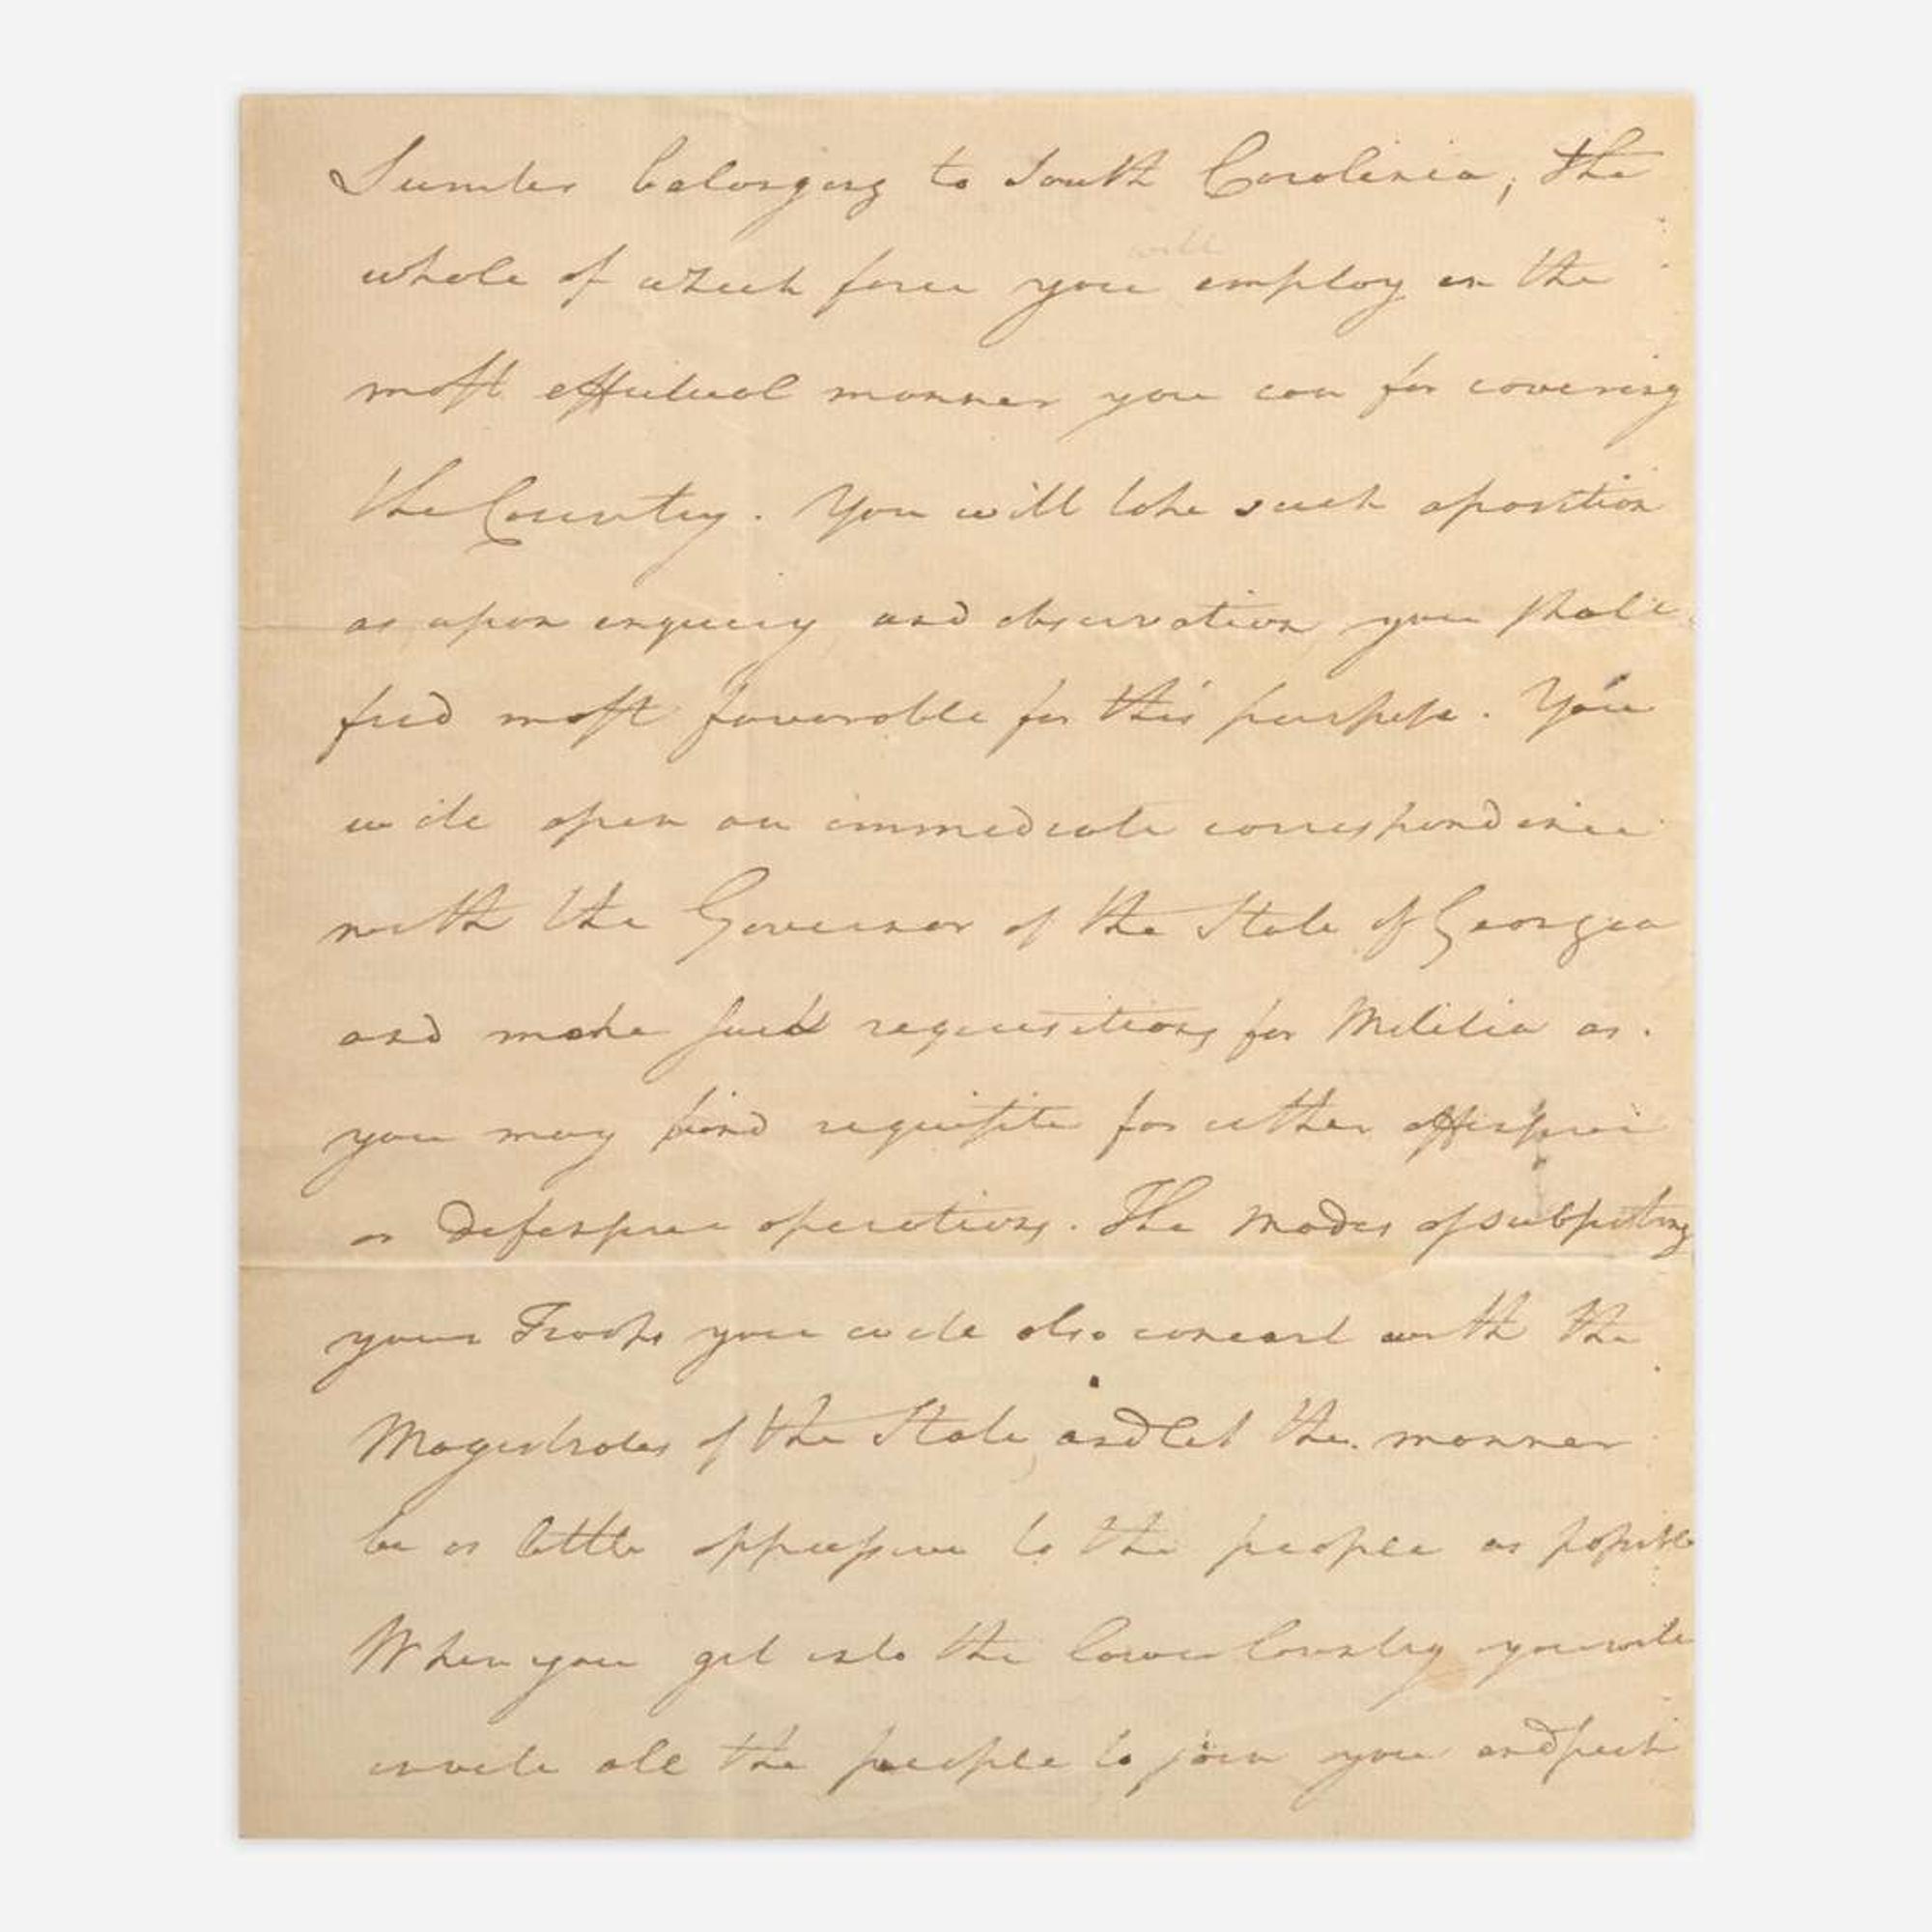 Sumter belonging to South Carolinia; the
will
whole of which force you employ in the
most effectual manner you can for covering
the Country. You will take such a position
as upon enquiry and observation you shall
find most favorable for this purpose. You
will open an immediate correspondence
with the Governor of the State of Georgia
and make such requisitions for Militia as
you may find requisite for either offensive
or defensive operations. The modes of subsisting
your Troops you will also concert with the
Magistrates of the State, and let the manner
be as little oppressive to the people as possible
When you get into the lower Country you will
invite all the people to join you and such